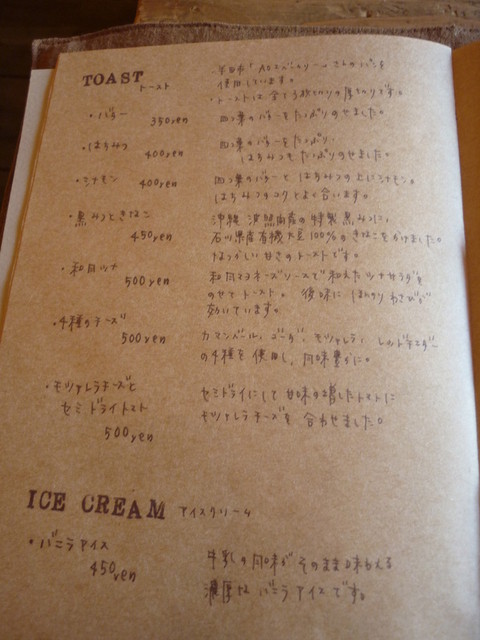 TOAST トースト
さんのパンを
使用しています。
・トーストは全て3枚切りの厚切りです。
・バター 350yen 四つ葉のバターをたっぷりのせました。
・はちみつ 400yen 四つ葉のバターをたっぷり、
はちみつもたっぷりのせました。
・シナモン 400yen 四つ葉のバターとはちみつの上にシナモン。
はちみつのコクとよく合います。
・黒みつときなこ 沖縄 波照間産の特製黒みつに、
450yen 石川県産有機大豆100%のきなこをかけました。
甘さのトーストです。
・和風ツナ 和風マヨネーズソースで和えたツナサラダを
500yen のせてトースト。後味にほんのりわさびが
効いています。
・4種のチーズ カマンベール、ゴーダ、モツァレラ、レッドチェダー
500yen の4種を使用し、風味豊かに。
・モツァレラチーズと セミドライにして甘味の増したトマトに
セミドライトマト モツァレラチーズを合わせました。
500yen
ICE CREAM アイスクリーム
・バニラアイス 牛乳の風味がそのまま味わえる
450yen 濃厚なバニラアイスです。